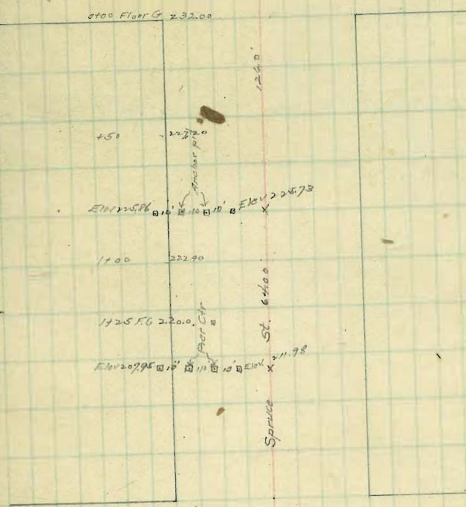 0+00 Floor G 232.00
126.0'
+50 227.20
Anchor
Elev 225.86 10' 10' 10' Elev 224.73
1+00 222.40
1+25 F.G 220.0.
Pier Ctr
Elev 207.95 10' 10' 10' Elev. 211.98
Spruce St. 64.00